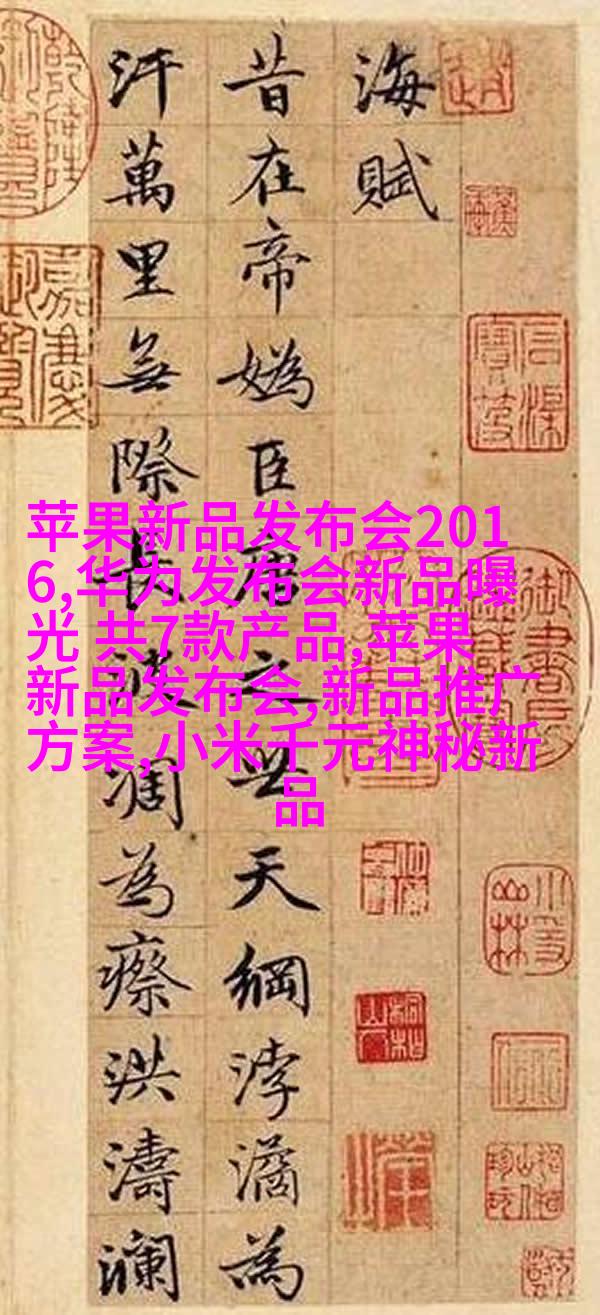 海賦
昔在帝媯臣唐之世天綱浡潏為
汗萬里無際長波凋為瘵洪濤瀾
苹果新品发布会201
6,华为发布会新品曝
光 共7款产品,苹果
新品发布会,新品推广
方案,小米千元神秘新
品